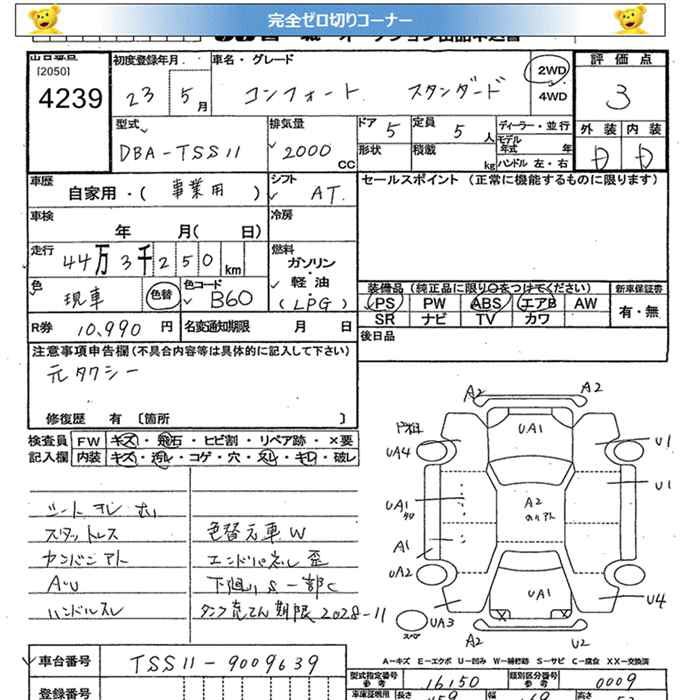 完全ゼロ切りコーナー
[2050]
4239
初度登録年月
23 5月
車名・グレード
コンフォート スタンダード
2WD
4WD
評価点
3
外装 内装
D D
型式
DBA-TSS11
排気量
2000 CC
ドア 5
定員 5 人
形状
積載 kg
ディーラー・並行
モデル年式 年
ハンドル 左・右
車歴
自家用・(事業用)
シフト
AT.
セールスポイント (正常に機能するものに限ります)
車検
年 月( 日)
冷房
走行
44万3千250 km
燃料
ガソリン
・
軽油
(LPG)
色
現車 色替
色コード
B60
装備品 (純正品に限り○をつけてください)
PS PW ABS エアB AW
SR ナビ TV カワ
新車保証書
有・無
R券 10,990 円
名変通知期限 月 日
後日品
注意事項申告欄 (不具合内容等は具体的に記入して下さい)
元タクシー
修復歴 有 〔箇所 〕
検査員
記入欄
FW キズ・飛石・ヒビ割・リペア跡・×要
内装 キズ・汚れ・コゲ・穴・スレ・キレ・破レ
シートヨレ
スタットレス
カンバンアト
ハンドルスレ
色替元車W
エンドパネル歪
下廻りS一部C
タンク充てん期限 2028-11
A2 A2
UA1
UA4
U1
U1
UA1
A2
A1
UA2
UA1
UA3
U4
A2 U2
スペア
A-キズ E-エクボ U-凹み W-補修跡 S-サビ C-腐食 XX-交換済
車台番号
TSS11-9009639
登録番号
型式指定番号
参考
16150
類別区分番号
参考
0009
長さ
幅
高さ